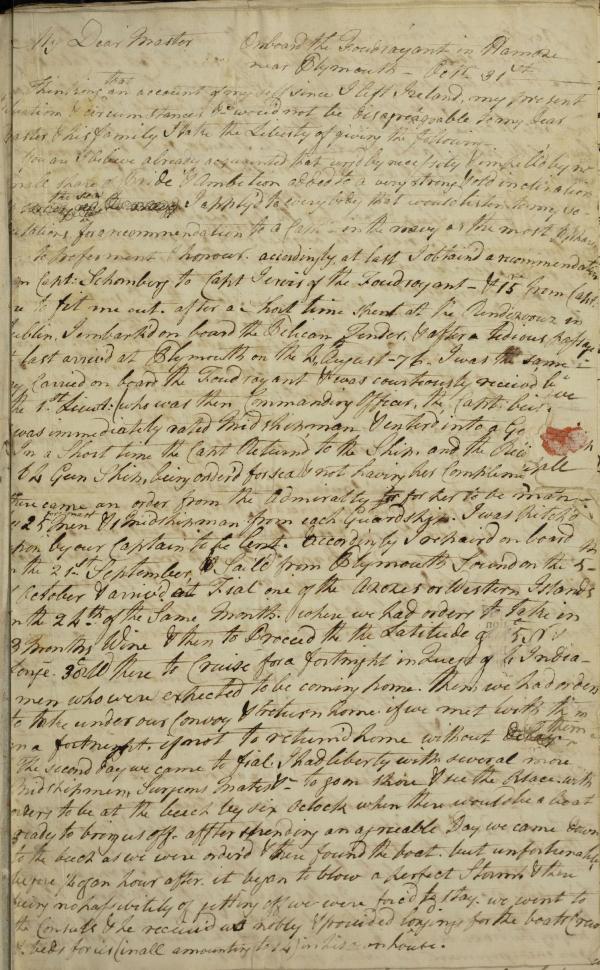 My Dear Master Onboard the Foudrayant in Hamoze
near Plymouth - Octr. 31st
Thinking that an account of my self since I left Ireland, my present
situation & circumstances &c would not be disagreeable to my Dear
Master & his family I take the Liberty of giving the following
You are I believe already acquainted that urged by necessity & impelled by no
small share of Pride & Ambition added to a very strong & old inclination
the sea I apply'd to every body that would listen to my so-
licitations for a recommendation to a Capt. in the navy as the most
to Preferment & honour. accordingly at last I obtaind a recommendation
from Capt: Schomberg to Capt Jervis of the Foudroyant - & 15 from Capt.
to fit me out. after a short time spent at the Rendezvouz in
Dublin, I embarkd on board the Pelican Tender, & after a tedious passage
at last arrived at Plymouth on the August - 76. I was the same
Day Carried on board the Foudroyant & was courteously received by
the 1st. Lieut: (who was then Commanding Officer, the Capt. being
was immediately rated Midshipman & enterd into a
In a Short time the Capt Returnd to the Ship. and the
Gun Ship, being orderd for sea & not having her Compliment
there came an order from the Admiralty for her to be man-
25 men & 1 midshipman from each Guardship. I was pitch'd
upon by our Captain to be Lent. Accordingly I repaird on board
on the 21st September, & Saild from Plymouth Sound on the 5
October & arrived at Fial one of the Azores or Western Islands
on the 24th of the Same Month. where we had orders to take in
3 months Wine & then to Proceed to the Latitude of
Longe. 30 there to Cruise for a fortnight in Quest of India-
men who were expected to be coming home. Them we had orders
to take under our Convoy & return home. if we met with them
in a fortnight. if not to return home without them
The second Day we came to Fial I had liberty with several more
Midshipmen, Surgeons mates &c to go on shore & see the Place. with
orders to be at the beech by six oclock when there would be a boat
ready to bring us off. after spending an agreeable Day we came down
to the beach as we were order'd & there found the boat. but unfortunately
before 1/2 an hour after. it began to blow a perfect Storm & there
being no possibility of getting off we were forced to stay. we went to
the Consuls & he received us nobly & provided lodgings for the boats Crew
& beds for us (in all amounting to ) in his own house.